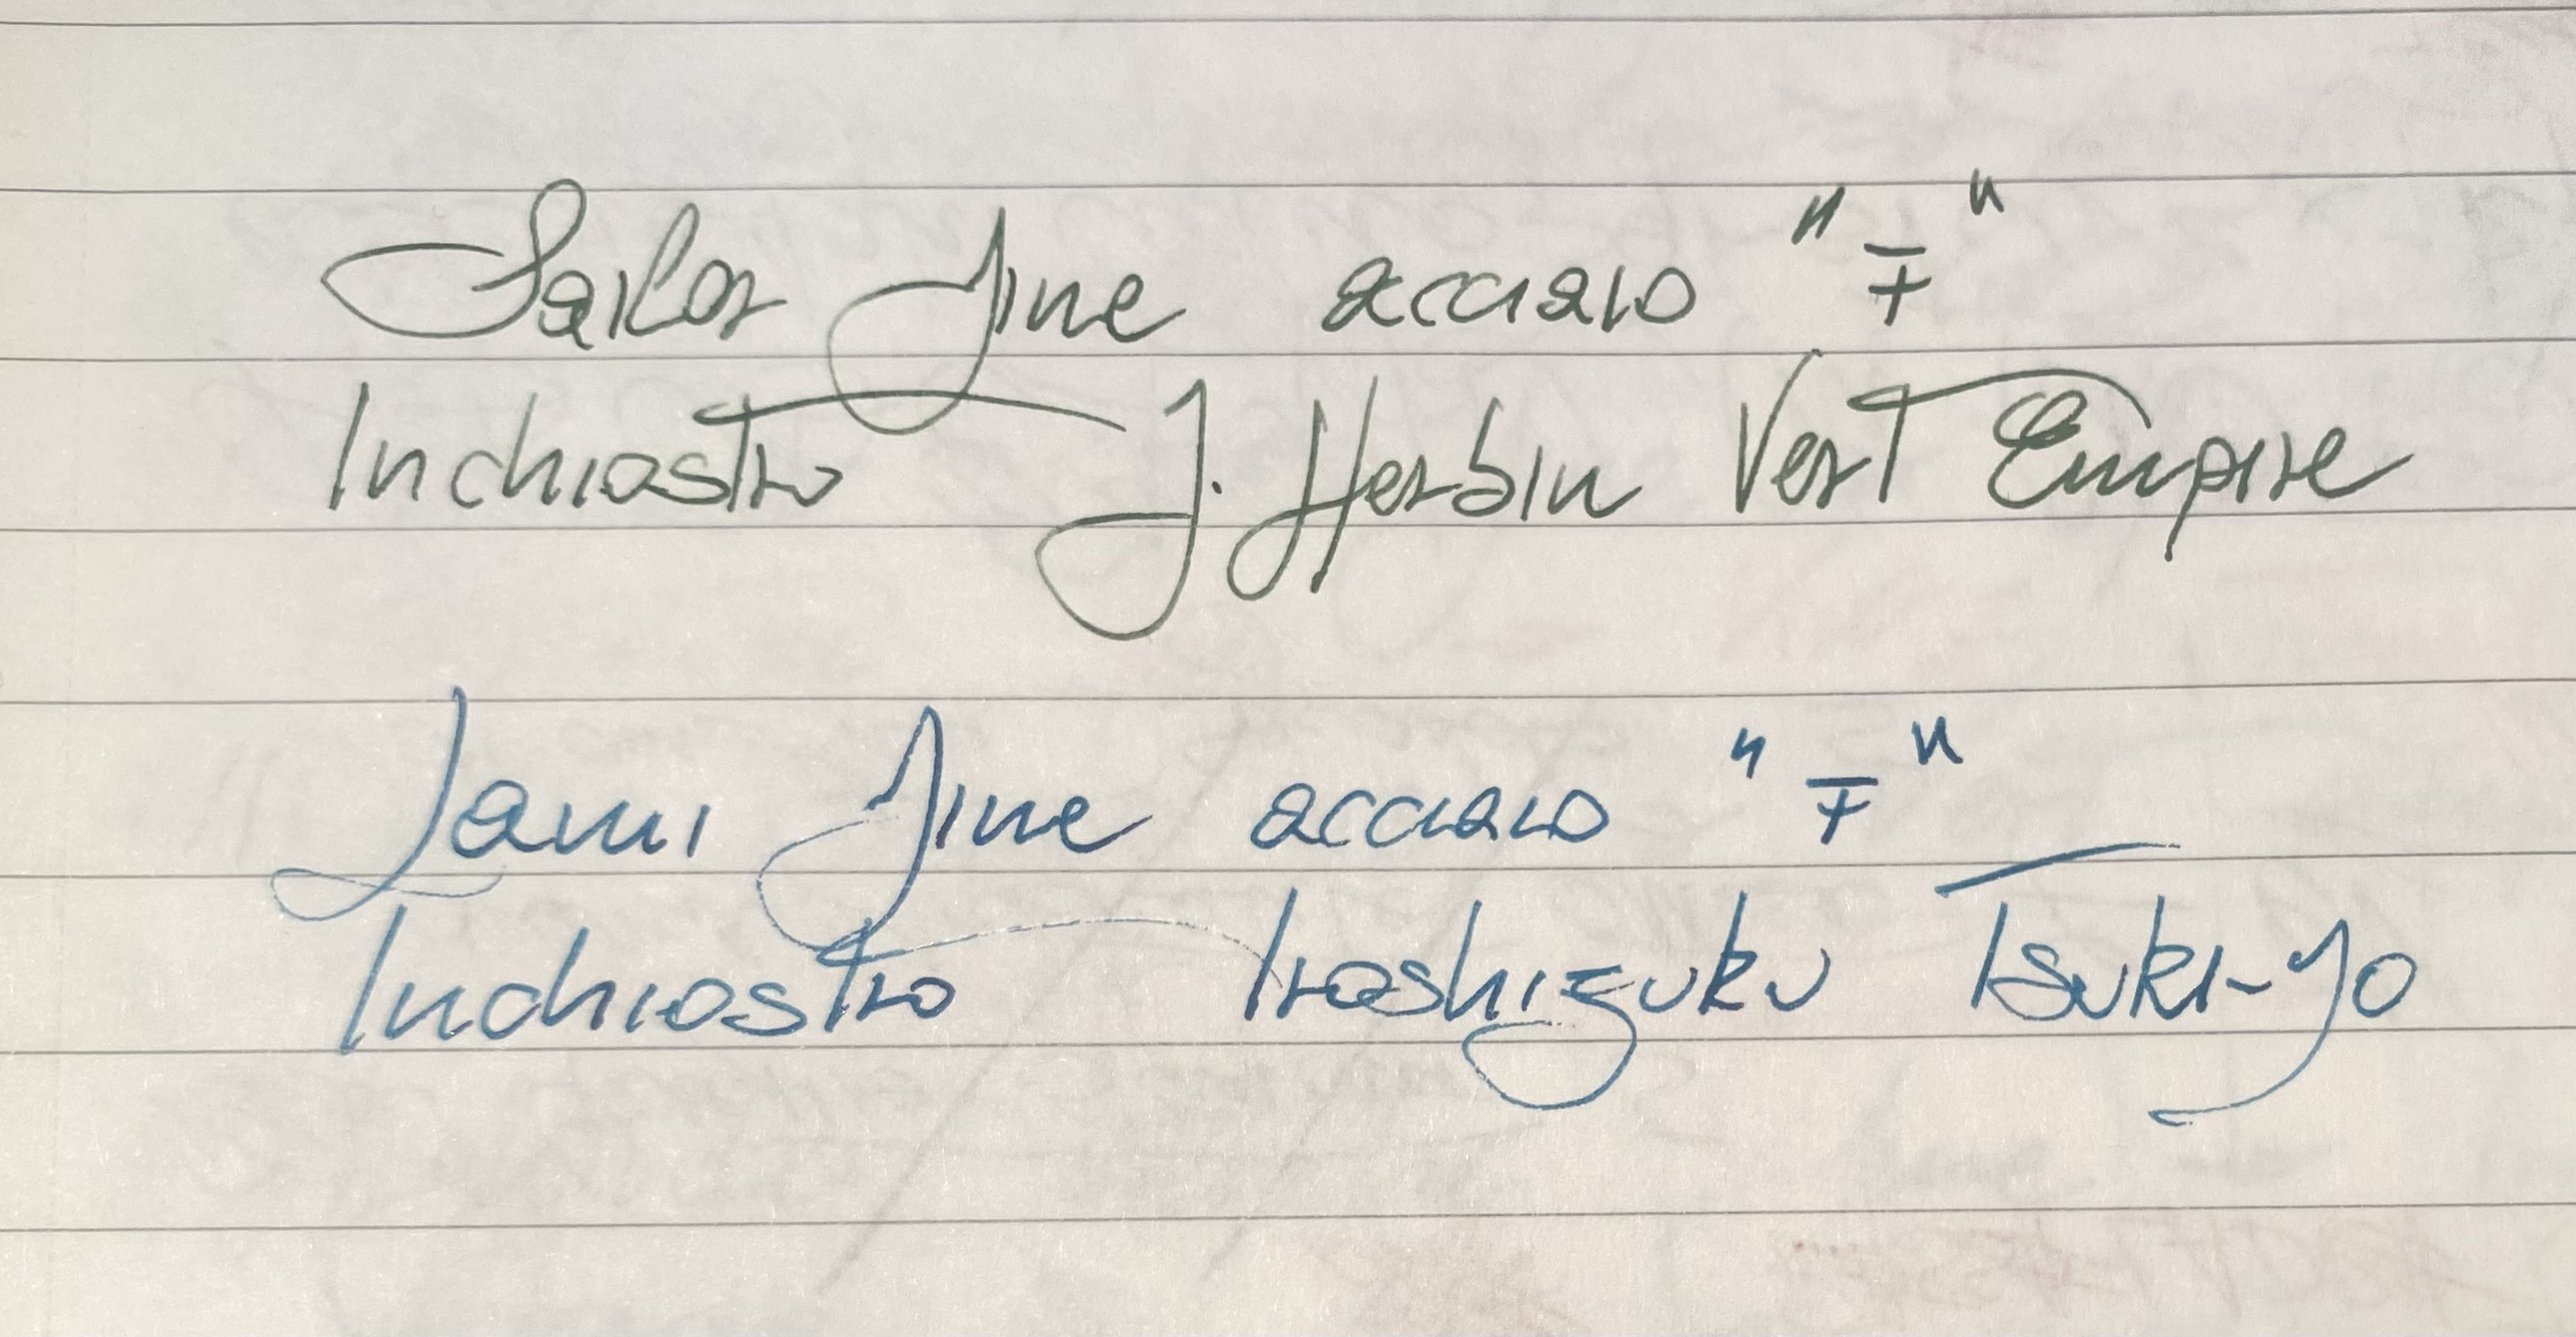 Sailor fine acciaio "F"
Inchiostro J. Herbin Vert Empire
Lami fine acciaio "F"
Inchiostro Iroshizuku Tsuki-yo